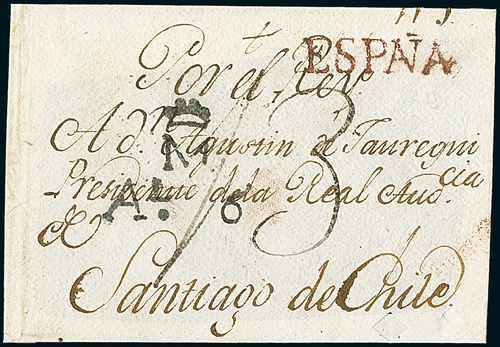 ESPAÑA
Por el Rey
A dn. Agustin de Jauregui
Presidente de la Real Aucia
&
M
A: 6
3
Santiago de Chile.